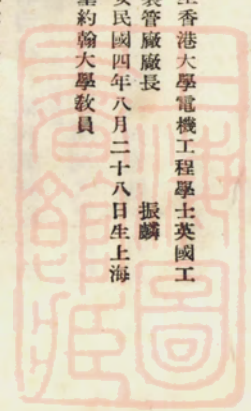 香港大學電機工程學士英國工
管廠廠長　　振麟
民國四年八月二十八日生上海
約翰大學敎員